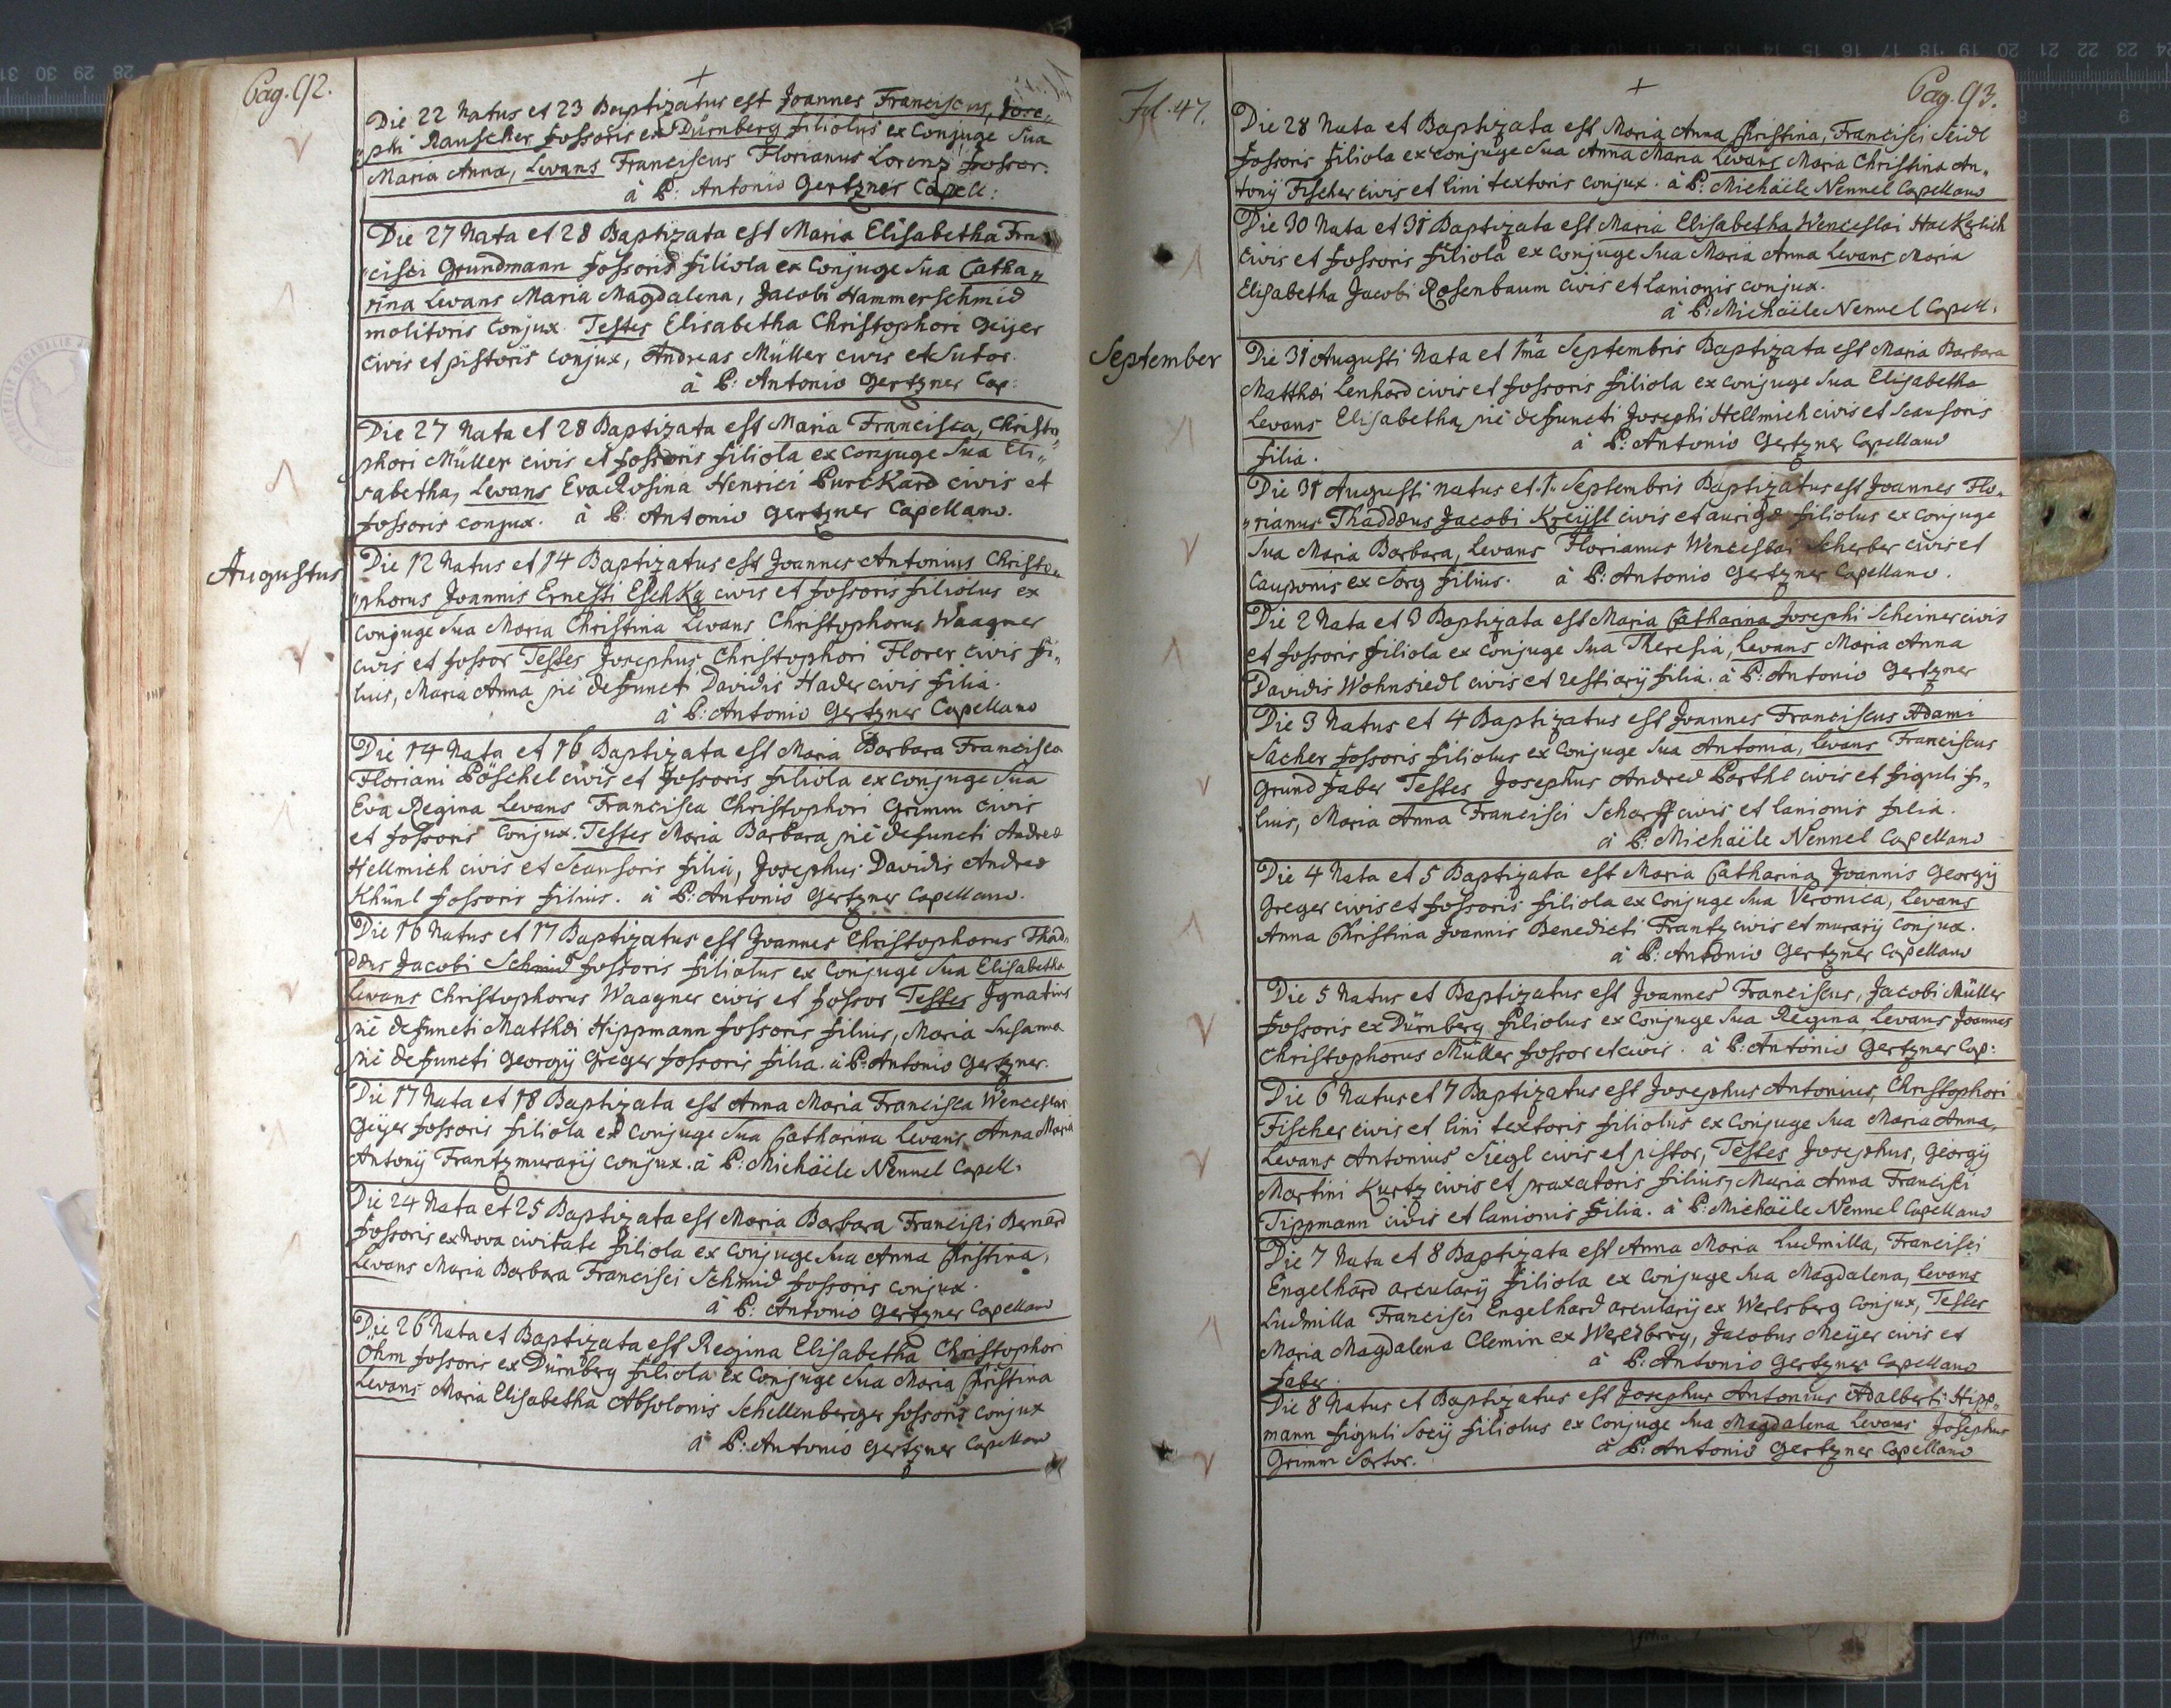 Pag. 92.
Die 22 Natus et 23 Baptizatus est Joannes Franciscus, Jose„
„phi Rauscher fossoris ex Dürnberg filiolus ex Conjuge Sua
Maria Anna, Levans Franciscus Florianus Lorenz fossor.
à P: Antonio Gertzner Capell:
Die 27 Nata et 28 Baptizata est Maria Elisabetha Fran
„cisci Grundmann fossoris filiola ex Conjuge Sua Catha„
rina Levans Maria Magdalena, Jacobi Hammerschmid
molitoris Conjux. Testes Elisabetha Christophori Geijer
civis et pistoris conjux, Andreas Müller civis et Sutor.
à P: Antonio Gertzner Cap:
Die 27 Nata et 28 Baptizata est Maria Francisca, Christo„
phori Müller civis et fossoris filiola ex Conjuge Sua Eli„
sabetha, Levans Eva Rosina Henrici Purckard civis et
fossoris conjux. à P: Antonio Gertzner Capellano.
Augustus
Die 12 Natus et 14 Baptizatus est Joannes Antonius Christo„
„phorus Joannis Ernesti Eschka civis et fossoris filiolus ex
conjuge Sua Maria Christina Levans Christophorus Waagner
civis et fossor Testes Josephus Christophori Florer civis fi„
lius, Maria Anna piè defuncti Davidis Hader civis filia.
à P: Antonio Gertzner Capellano
Die 14 Nata et 16 Baptizata est Maria Barbara Francisca
Floriani Pöschel civis et fossoris filiola ex conjuge Sua
Eva Regina Levans Francisca Christophori Grimm civis
et fossoris Conjux. Testes Maria Barbara piè defuncti Andreæ
Hellmich civis et Scansoris filia, Josephus Davidis Andreæ
Khünl fossoris filius. à P: Antonio Gertzner Capellano.
Die 16 Natus et 17 Baptizatus est Joannes Christophorus Thad„
dæus Jacobi Schmid fossoris filiolus ex Conjuge Sua Elisabetha
Levans Christophorus Waagner civis et fossor Testes Ignatius
piè defuncti Matthæi Hippmann fossoris filius, Maria Susanna
piè defuncti Georgij Greger fossoris filia. à P: Antonio Gertzner.
Die 17 Nata et 18 Baptizata est Anna Maria Francisca Wenceslai
Geijer fossoris filiola ex Conjuge Sua Catharina Levans Anna Maria
Antonij Frantz murarij conjux. à P: Michäele Nennel Capell.
Die 24 Nata et 25 Baptizata est Maria Barbara Francisci Bernard
fossoris ex nova civitate filiola ex Conjuge Sua Anna Christina,
Levans Maria Barbara Francisci Schmid fossoris conjux.
à P: Antonio Gertzner Capellano
Die 26 Nata et Baptizata est Regina Elisabetha Christophori
Öhm fossoris ex Dürnberg filiola ex Conjuge Sua Maria Christina
Levans Maria Elisabetha Absolonis Schellenberger fossoris conjux
à P: Antonio Gertzner Capellano
Fol. 47.
Pag. 93.
Die 28 Nata et Baptizata est Maria Anna Christina, Francisci Seidl
fossoris filiola ex conjuge Sua Anna Maria Levans Maria Christina An„
tonij Fischer civis et lini textoris conjux. à P: Michäele Nennel Capellano
Die 30 Nata et 31 Baptizata est Maria Elisabetha Wenceslai Hackerlich
civis et fossoris filiola ex conjuge Sua Maria Anna Levans Maria
Elisabetha Jacobi Rosenbaum civis et Lanionis conjux.
à P: Michäele Nennel Capell.
September
Die 31 Augusti Nata et 1mâ Septembris Baptizata est Maria Barbara
Matthæi Lenhard civis et fossoris filiola ex conjuge Sua Elisabetha
Levans Elisabetha, piè defuncti Josephi Hellmich civis et scansoris
filia. à P: Antonio Gertzner Capellano
Die 31 Augusti natus et 1. Septembris Baptizatus est Joannes Flo„
„rianus Thaddæus Jacobi Kreijsl civis et aurigæ filiolus ex conjuge
Sua Maria Barbara, Levans Florianus Wenceslai Scherber civis et
Cauponis ex Sorg filius. à P: Antonio Gertzner Capellano.
Die 2 Nata et 3 Baptizata est Maria Catharina Josephi Scheiner civis
et fossoris filiola ex conjuge Sua Theresia, Levans Maria Anna
Davidis Wohnsiedl civis et restiarij filia. à P: Antonio Gertzner
Die 3 Natus et 4 Baptizatus est Joannes Franciscus Adami
Sacher fossoris filiolus ex Conjuge Sua Antonia, Levans Franciscus
Grund faber Testes Josephus Andreæ Barthl civis et figuli fi„
lius, Maria Anna Francisci Scharff civis et lanionis filia.
à P: Michäele Nennel Capellano
Die 4 Nata et 5 Baptizata est Maria Catharina Joannis Georgij
Greger civis et fossoris filiola ex Conjuge Sua Veronica, Levans
Anna Christina Joannis Benedicti Frantz civis et murarij Conjux.
à P: Antonio Gertzner Capellano
Die 5 Natus et Baptizatus est Joannes Franciscus, Jacobi Müller
fossoris ex Dürnberg filiolus ex Conjuge Sua Regina Levans Joannes
Christophorus Müller fossor et civis. à P: Antonio Gertzner Cap:
Die 6 Natus et 7 Baptizatus est Josephus Antonius, Christophori
Fischer civis et lini textoris filiolus ex Conjuge Sua Maria Anna,
Levans Antonius Siegl civis et pistor, Testes Josephus, Georgij
Martini Kurtz civis et praxatoris filius, Maria Anna Francisci
Tippmann civis et lanionis filia. à P: Michäele Nennel Capellano
Die 7 Nata et 8 Baptizata est Anna Maria Ludmilla, Francisci
Engelhard arcularij filiola ex Conjuge Sua Magdalena, Levans
Ludmilla Francisci Engelhard arcularij ex Werlsberg Conjux, Testes
Maria Magdalena Clemin ex Werlsberg, Jacobus Meijer civis et
faber. à P: Antonio Gertzner Capellano
Die 8 Natus et Baptizatus est Josephus Antonius Adalberti Hipp„
mann figuli Socij filiolus ex Conjuge Sua Magdalena Levans Josephus
Grimm Sartor. à P: Antonio Gertzner Capellano